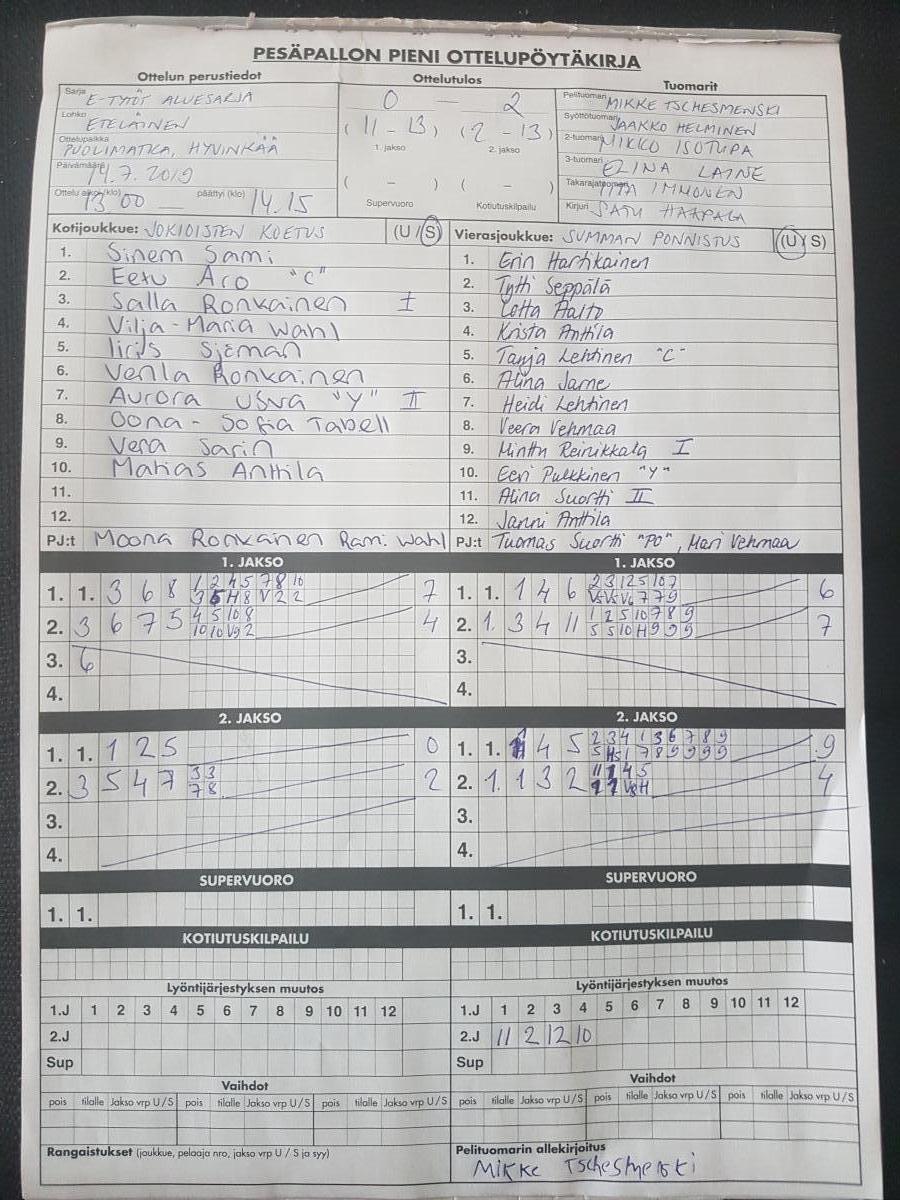 PESÄPALLON PIENI OTTELUPÖYTÄKIRJA
Ottelun perustiedot
Ottelutulos
Tuomarit
Sarja E-TYTÖT ALUESARJA
Lohko ETELÄINEN
Ottelupaikka PUOLIMATKA, HYVINKÄÄ
Päivämäärä 14.7.2019
Ottelu alkoi (klo) 13 00 päättyi (klo) 14.15
0 — 2
(11 - 13) (2 - 13)
1. jakso 2. jakso
( - ) ( - )
Supervuoro Kotiutuskilpailu
Pelituomari MIKKE TSCHESMENSKI
Syöttötuomari JAAKKO HELMINEN
2-tuomari MIKKO ISOTUPA
3-tuomari ELINA LAINE
Takarajatuomari IMMONEN
Kirjuri SATU HAAPALA
Kotijoukkue: JOKIOISTEN KOETUS (U/S)
1. Sinem Sami
2. Eetu Aro "C"
3. Salla Ronkainen I
4. Vilja-Maria Wahl
5. Iiris Sjeman
6. Venla Ronkainen
7. Aurora Usva "Y" II
8. Oona-Sofia Tabell
9. Vera Sarin
10. Matias Anttila
11.
12.
PJ:t Moona Ronkainen Rami Wahl
Vierasjoukkue: SUMMAN PONNISTUS (U/S)
1. Erin Hartikainen
2. Tytti Seppälä
3. Lotta Aalto
4. Krista Anttila
5. Tanja Lehtinen "C"
6. Alina Jame
7. Heidi Lehtinen
8. Veera Vehmaa
9. Minttu Reinikkala I
10. Eeri Pulkkinen "Y"
11. Alina Suortti II
12. Janni Anttila
PJ:t Tuomas Suortti "PO", Mari Vehmaa
1. JAKSO
1. 1. 3 6 8 1 2 4 5 7 8 10 7
3 5 H 8 V 2 2
2. 3 6 7 5 4 5 10 8 4
10 10 V9 2
3. 6
4.
1. JAKSO
1. 1. 1 4 6 2 3 12 5 10 7 6
V5 V5 V6 7 7 9
2. 1. 3 4 11 1 2 5 10 7 8 9 7
5 5 10 H 9 9 9
3.
4.
2. JAKSO
1. 1. 1 2 5 0
2. 3 5 4 7 3 3 2
7 8
3.
4.
2. JAKSO
1. 1. 4 5 2 3 4 1 3 6 7 8 9 9
5 H5 1 7 8 9 9 9 9
2. 1. 1 3 2 11 1 4 5 4
V8 H
3.
4.
SUPERVUORO
1. 1.
SUPERVUORO
1. 1.
KOTIUTUSKILPAILU
KOTIUTUSKILPAILU
Lyöntijärjestyksen muutos
1.J 1 2 3 4 5 6 7 8 9 10 11 12
2.J
Sup
Lyöntijärjestyksen muutos
1.J 1 2 3 4 5 6 7 8 9 10 11 12
2.J 11 2 12 10
Sup
Vaihdot
pois tilalle Jakso vrp U/S pois tilalle Jakso vrp U/S pois tilalle Jakso vrp U/S
Vaihdot
pois tilalle Jakso vrp U/S pois tilalle Jakso vrp U/S pois tilalle Jakso vrp U/S
Rangaistukset (joukkue, pelaaja nro, jakso vrp U / S ja syy)
Pelituomarin allekirjoitus
Mikke Tschesmenski